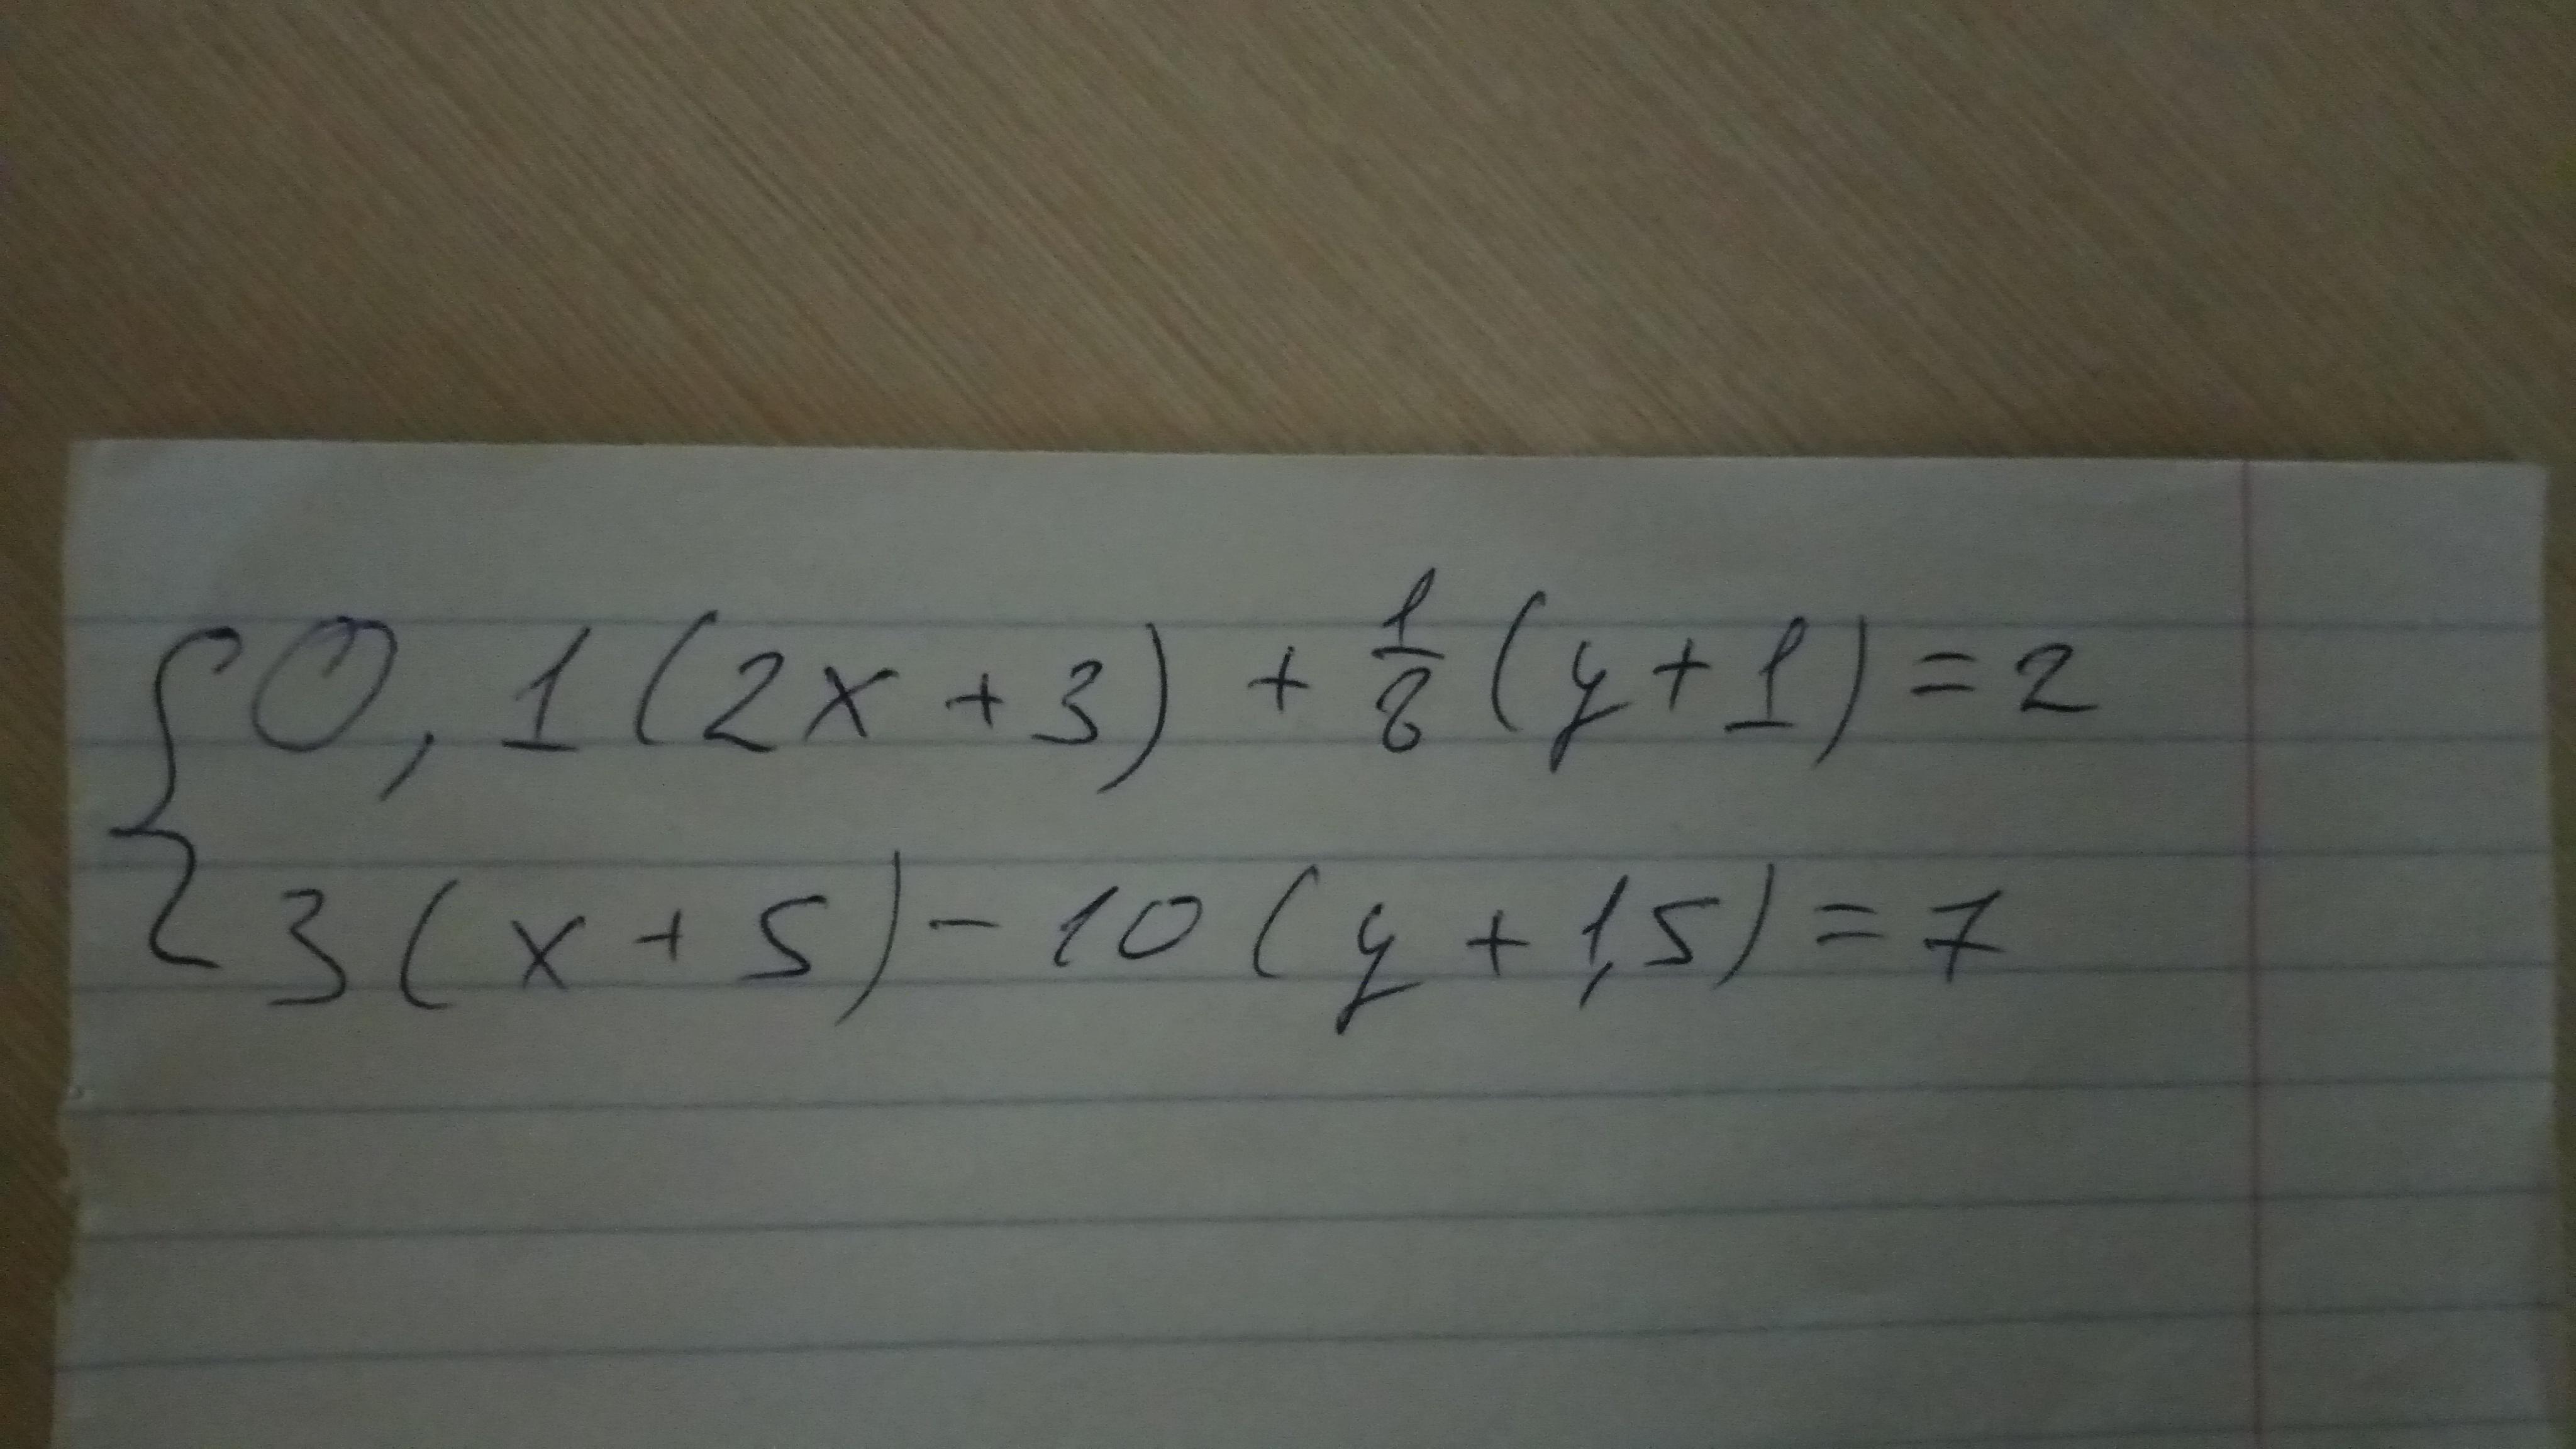 { 0,1(2x+3) + 1/8 (y+1) = 2
3(x+5) - 10(y+1,5) = 7